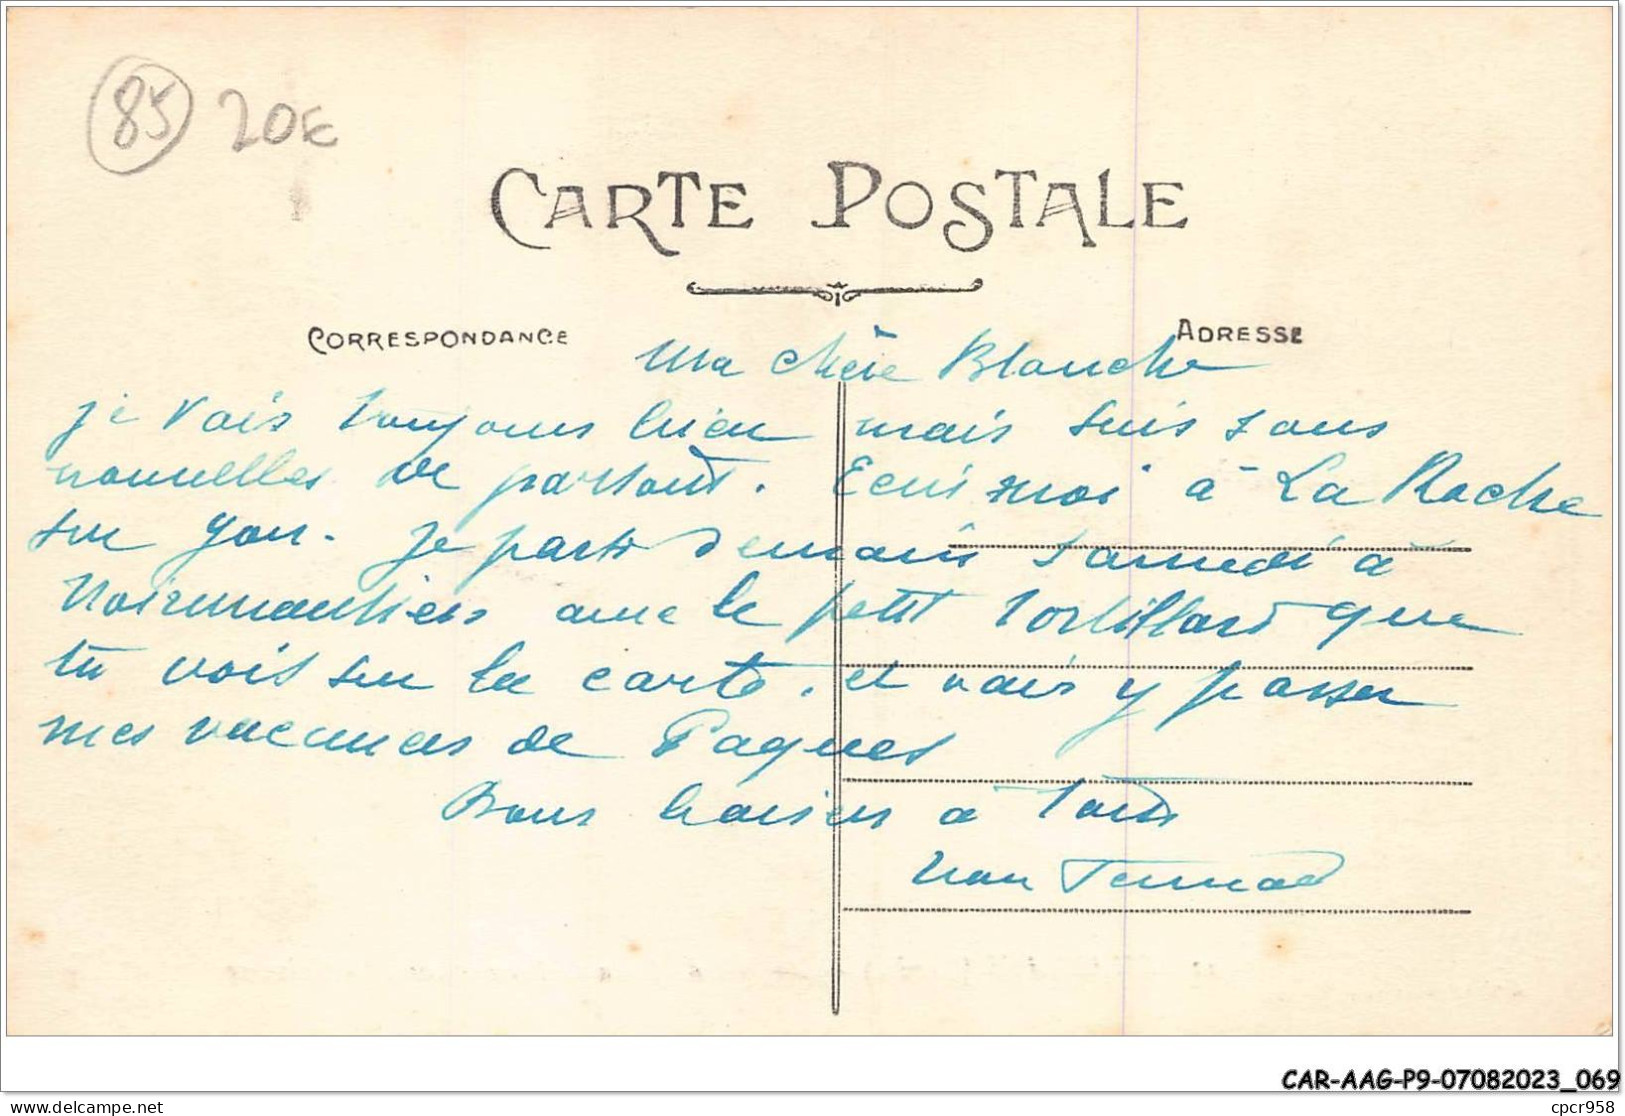 85 20€
CARTE POSTALE
CORRESPONDANCE
ADRESSE
Ma chère Blanche
je vais toujours bien mais suis sans
nouvelles de partout. Ecris moi à La Roche
sur Yon. Je pars demain samedi à
Noirmoutiers avec le petit tortillard que
tu vois sur la carte. et vais y passer
mes vacances de Paques
Bons baisers à tous
CAR-AAG-P9-07082023_069
delcampe.net
cpcr958